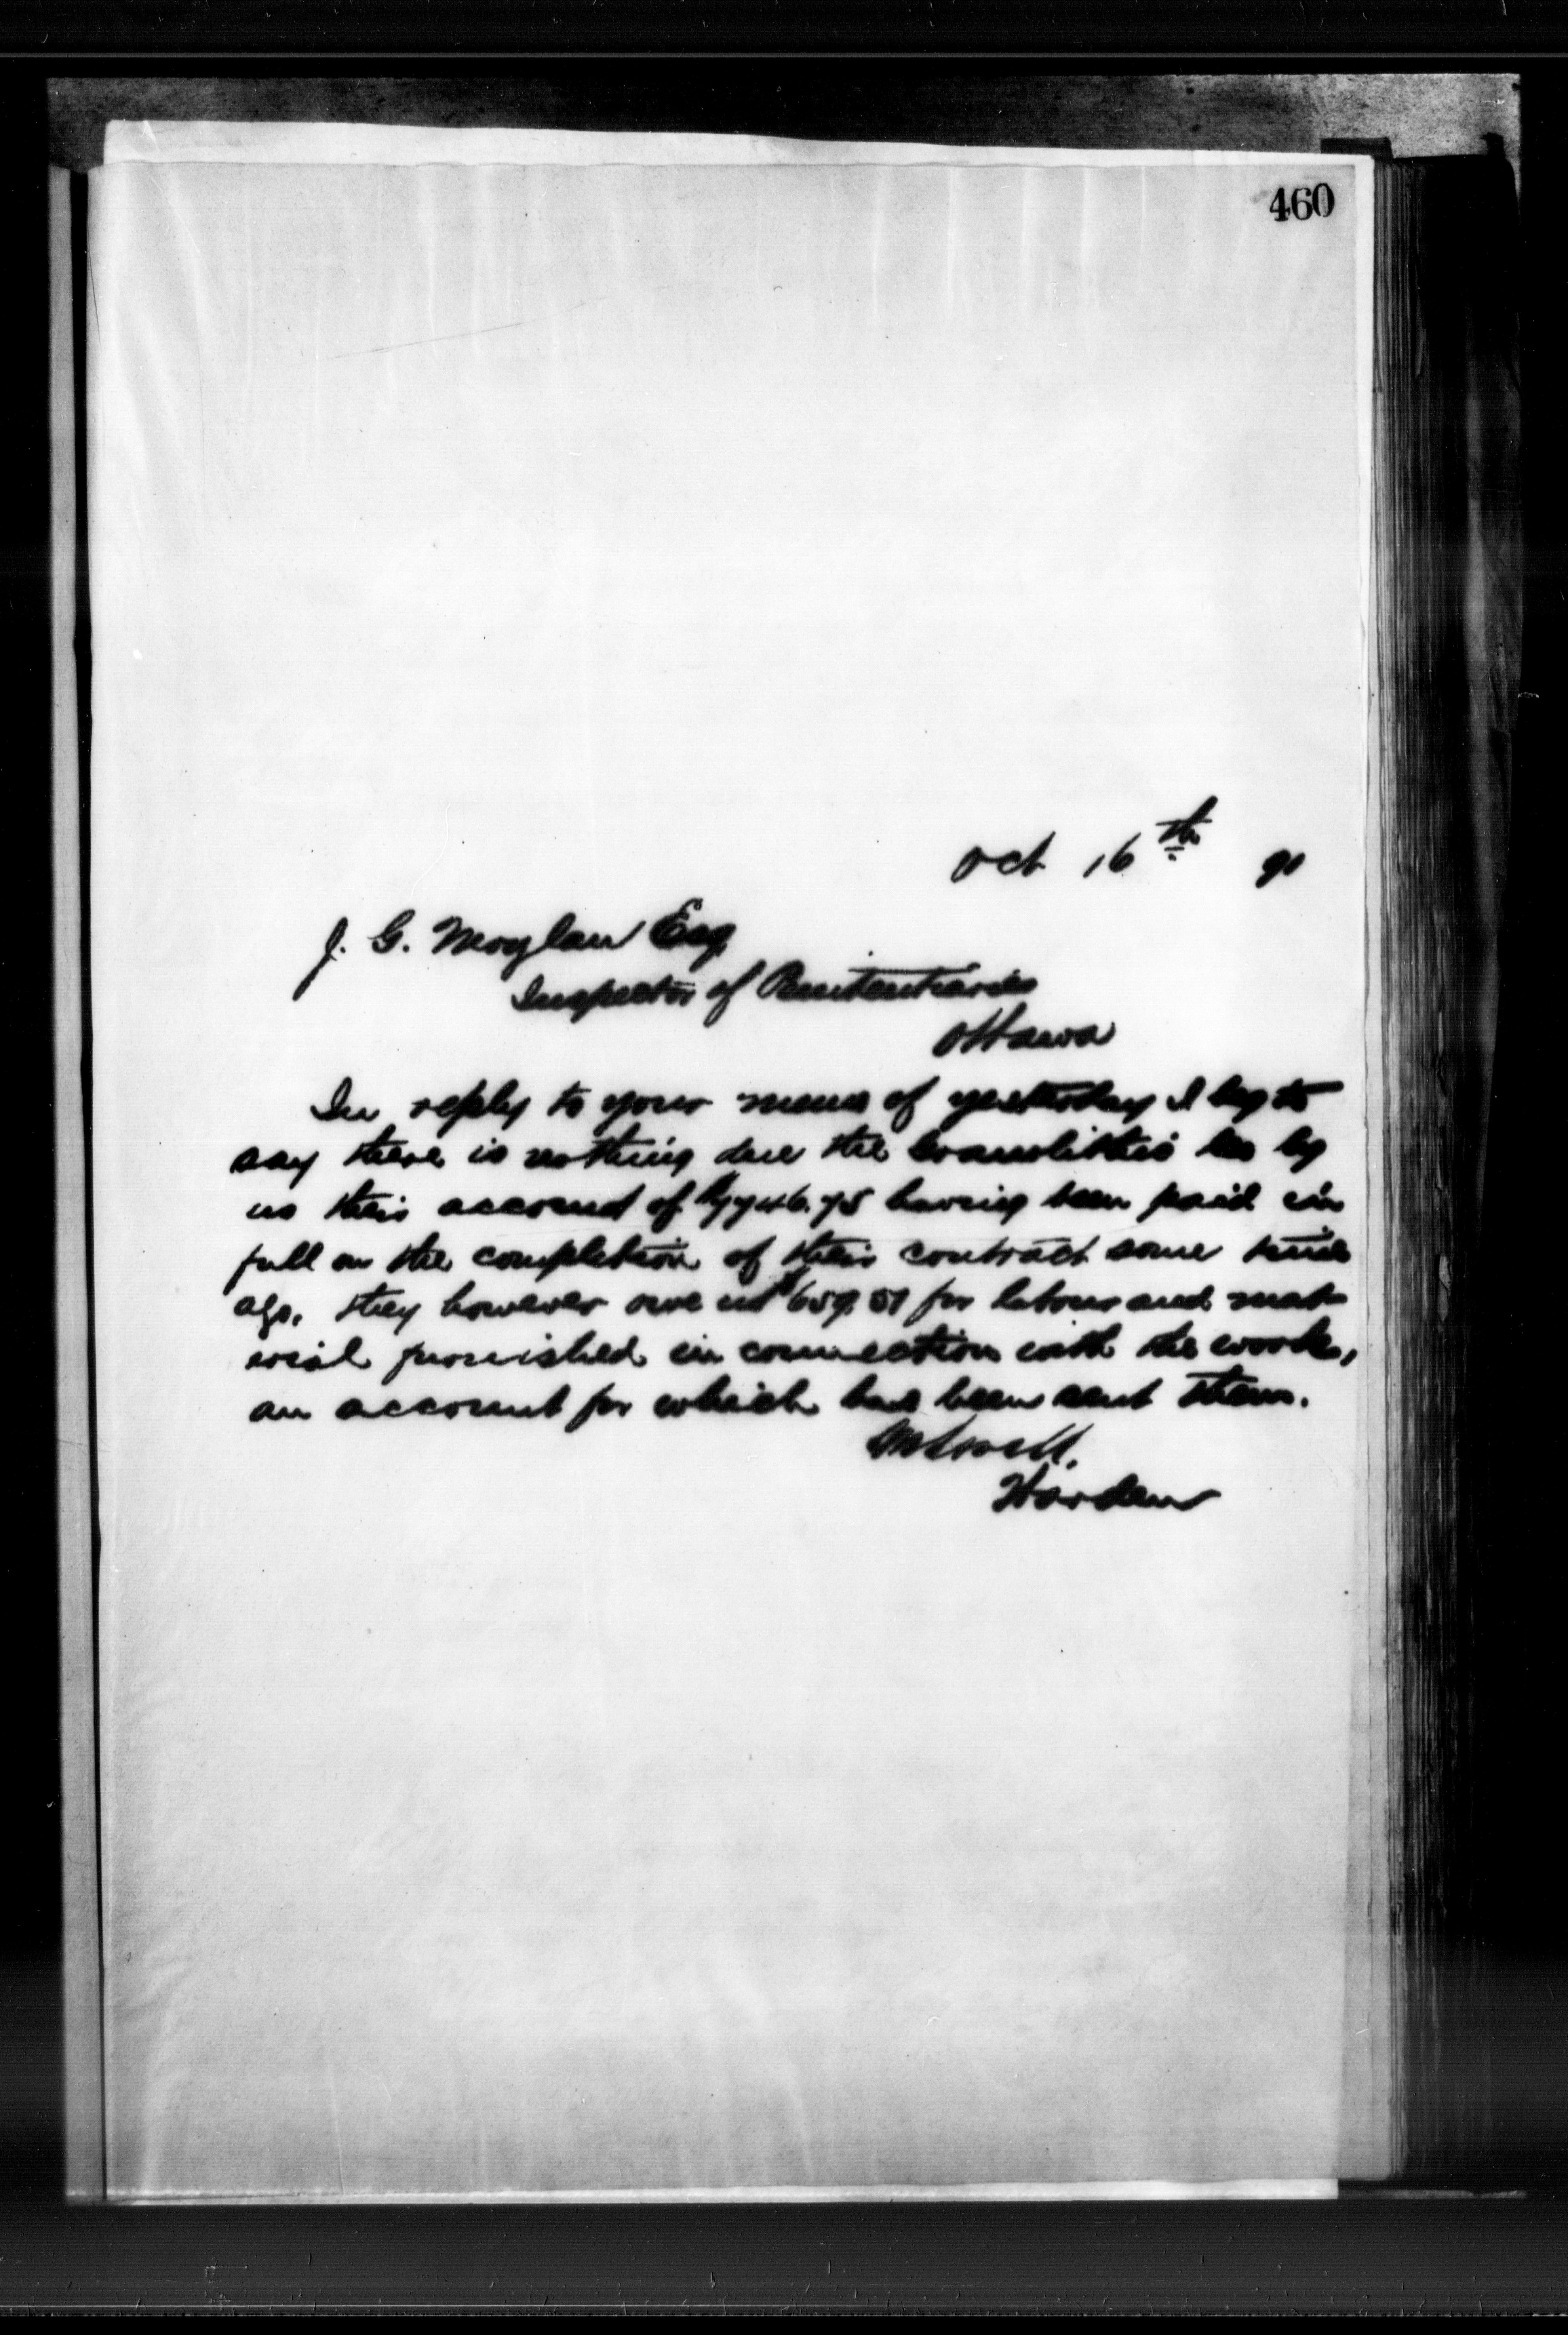 460
Oct 16th 91
J. G. Moylan Esq
Inspector of Penitentiaries
Ottawa
In reply to your memo of yesterday I beg to
say there is nothing due the Granolithic Co by
us their account of $7746.75 having been paid in
full on the completion of their contract some time
ago, they however owe us $659.51 for labour and mat
erial furnished in connection with the works,
an account for which has been sent them.
Warden